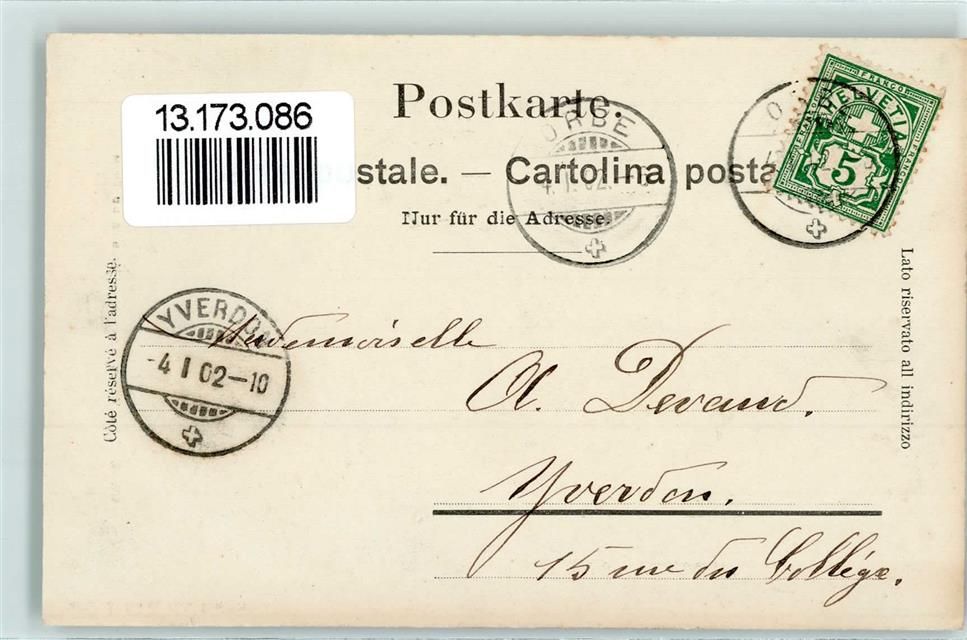 13.173.086
Postkarte.
postale. — Cartolina posta
Nur für die Adresse.
ORBE
4. I. 02.
HELVETIA
FRANCO
5
Côté réservé à l'adresse.
Lato riservato all indirizzo
YVERDON
-4 I 02-10
Mademoiselle
A. Devaud.
Yverdon.
15 rue du Collège.